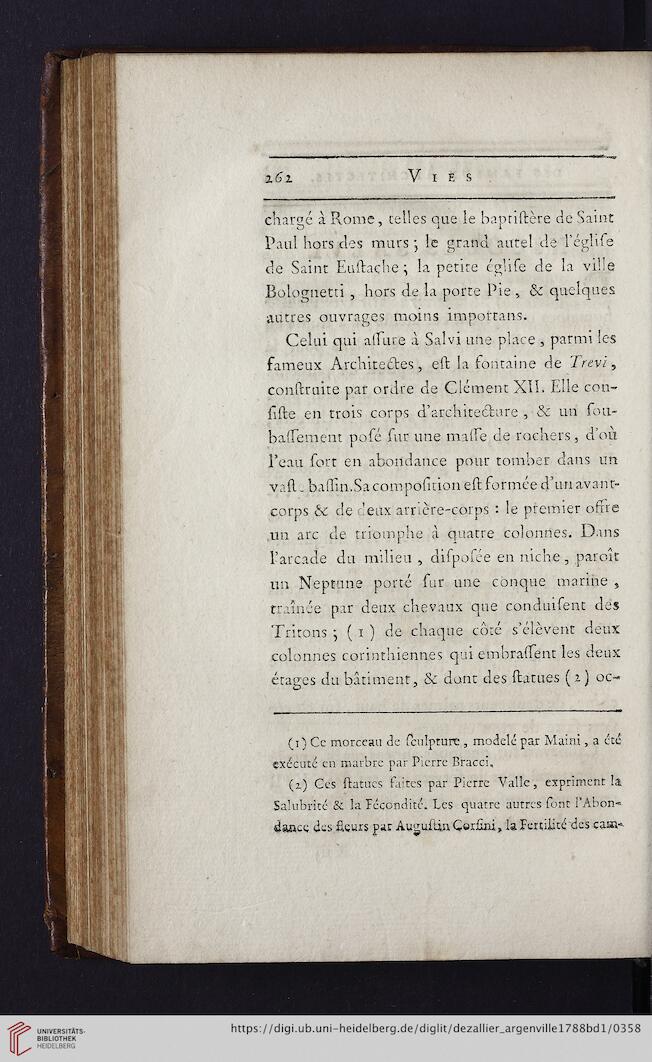 262 VIES
chargé à Rome, telles que le baptiſtère de Saint
Paul hors des murs ; le grand autel de l'égliſe
de Saint Euſtache ; la petite égliſe de la ville
Bolognetti , hors de la porte Pie , & quelques
autres ouvrages moins importans.
Celui qui aſſure à Salvi une place , parmi les
fameux Architectes , eſt la fontaine de Trevi ,
conſtruite par ordre de Clément XII. Elle con-
ſiſte en trois corps d'architecture , & un ſou-
baſſement poſé ſur une maſſe de rochers , d'où
l'eau ſort en abondance pour tomber dans un
vaſt. baſſin.Sa compoſition eſt formée d'un avant-
corps & de deux arrière-corps : le premier offre
un arc de triomphe à quatre colonnes. Dans
l'arcade du milieu , diſpoſée en niche , paroît
un Neptune porté ſur une conque marine ,
traînée par deux chevaux que conduiſent des
Tritons ; ( 1 ) de chaque côté s'élèvent deux
colonnes corinthiennes qui embraſſent les deux
étages du bâtiment , & dont des ſtatues ( 2 ) oc-
(1) Ce morceau de ſculpture , modelé par Maini , a été
exécuté en marbre par Pierre Bracci.
(2) Ces ſtatues faites par Pierre Valle , expriment la
Salubrité & la Fécondité. Les quatre autres ſont l'Abon-
dance des fleurs par Auguſtin Corſini , la Fertilité des cam-
UNIVERSITÄTS-
BIBLIOTHEK
HEIDELBERG
https://digi.ub.uni-heidelberg.de/diglit/dezallier_argenville1788bd1/0358